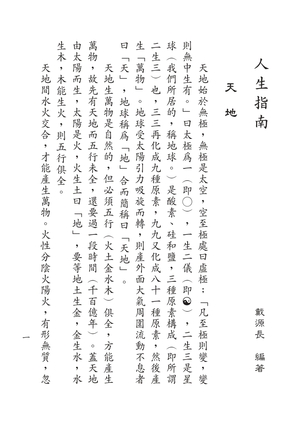 人生指南
戴源長　編著
天　地
天地始於無極，無極是太空，空至極處曰虛極；「凡至極則變，變
則無中生有。」曰太極為一（即◯），一生二儀（即☯），二生三是星
球（我們所居的，稱地球。）是酸素、硅和鹽，三種原素構成（即所謂
二生三）也，三三再化成九種原素，九九又化成八十一種原素，然後產
生「萬物」。地球受太陽引力吸旋而轉，則產外面大氣周圍流動不息者
曰「天」，地球稱為「地」合而簡稱曰「天地」。
天地生萬物是自然的，但必須五行（火土金水木）俱全，方能產生
萬物，故先有天地而五行未全，還要過一段時間（千百億年）。蓋天地
由太陽而生，太陽是火，火生土曰「地」，要等地土生金，金生水，水
生木，木能生火，則五行俱全。
天地間水火交合，才能產生萬物。火性分陰火陽火，有形無質，忽
一